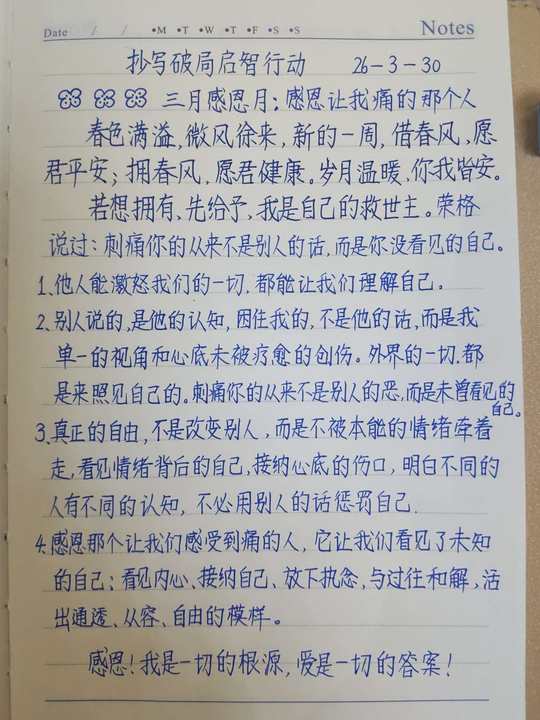 Date / / •M •T •W •T •F •S •S Notes
抄写破局启智行动 26-3-30
三月感恩月；感恩让我痛的那个人
春色满溢，微风徐来，新的一周，借春风，愿
君平安；拥春风，愿君健康。岁月温暖，你我皆安。
若想拥有、先给予、我是自己的救世主。荣格
说过：刺痛你的从来不是别人的话，而是你没看见的自己。
1、他人能激怒我们的一切，都能让我们理解自己。
2、别人说的，是他的认知，困住我的，不是他的话，而是我
单一的视角和心底未被疗愈的创伤。外界的一切，都
是来照见自己的。刺痛你的从来不是别人的恶，而是未曾看见的
自己。
3、真正的自由，不是改变别人，而是不被本能的情绪牵着
走，看见情绪背后的自己，接纳心底的伤口，明白不同的
人有不同的认知，不必用别人的话惩罚自己.
4、感恩那个让我们感受到痛的人，它让我们看见了未知
的自己；看见内心、接纳自己、放下执念，与过往和解，活
出通透、从容、自由的模样。
感恩！我是一切的根源，爱是一切的答案！